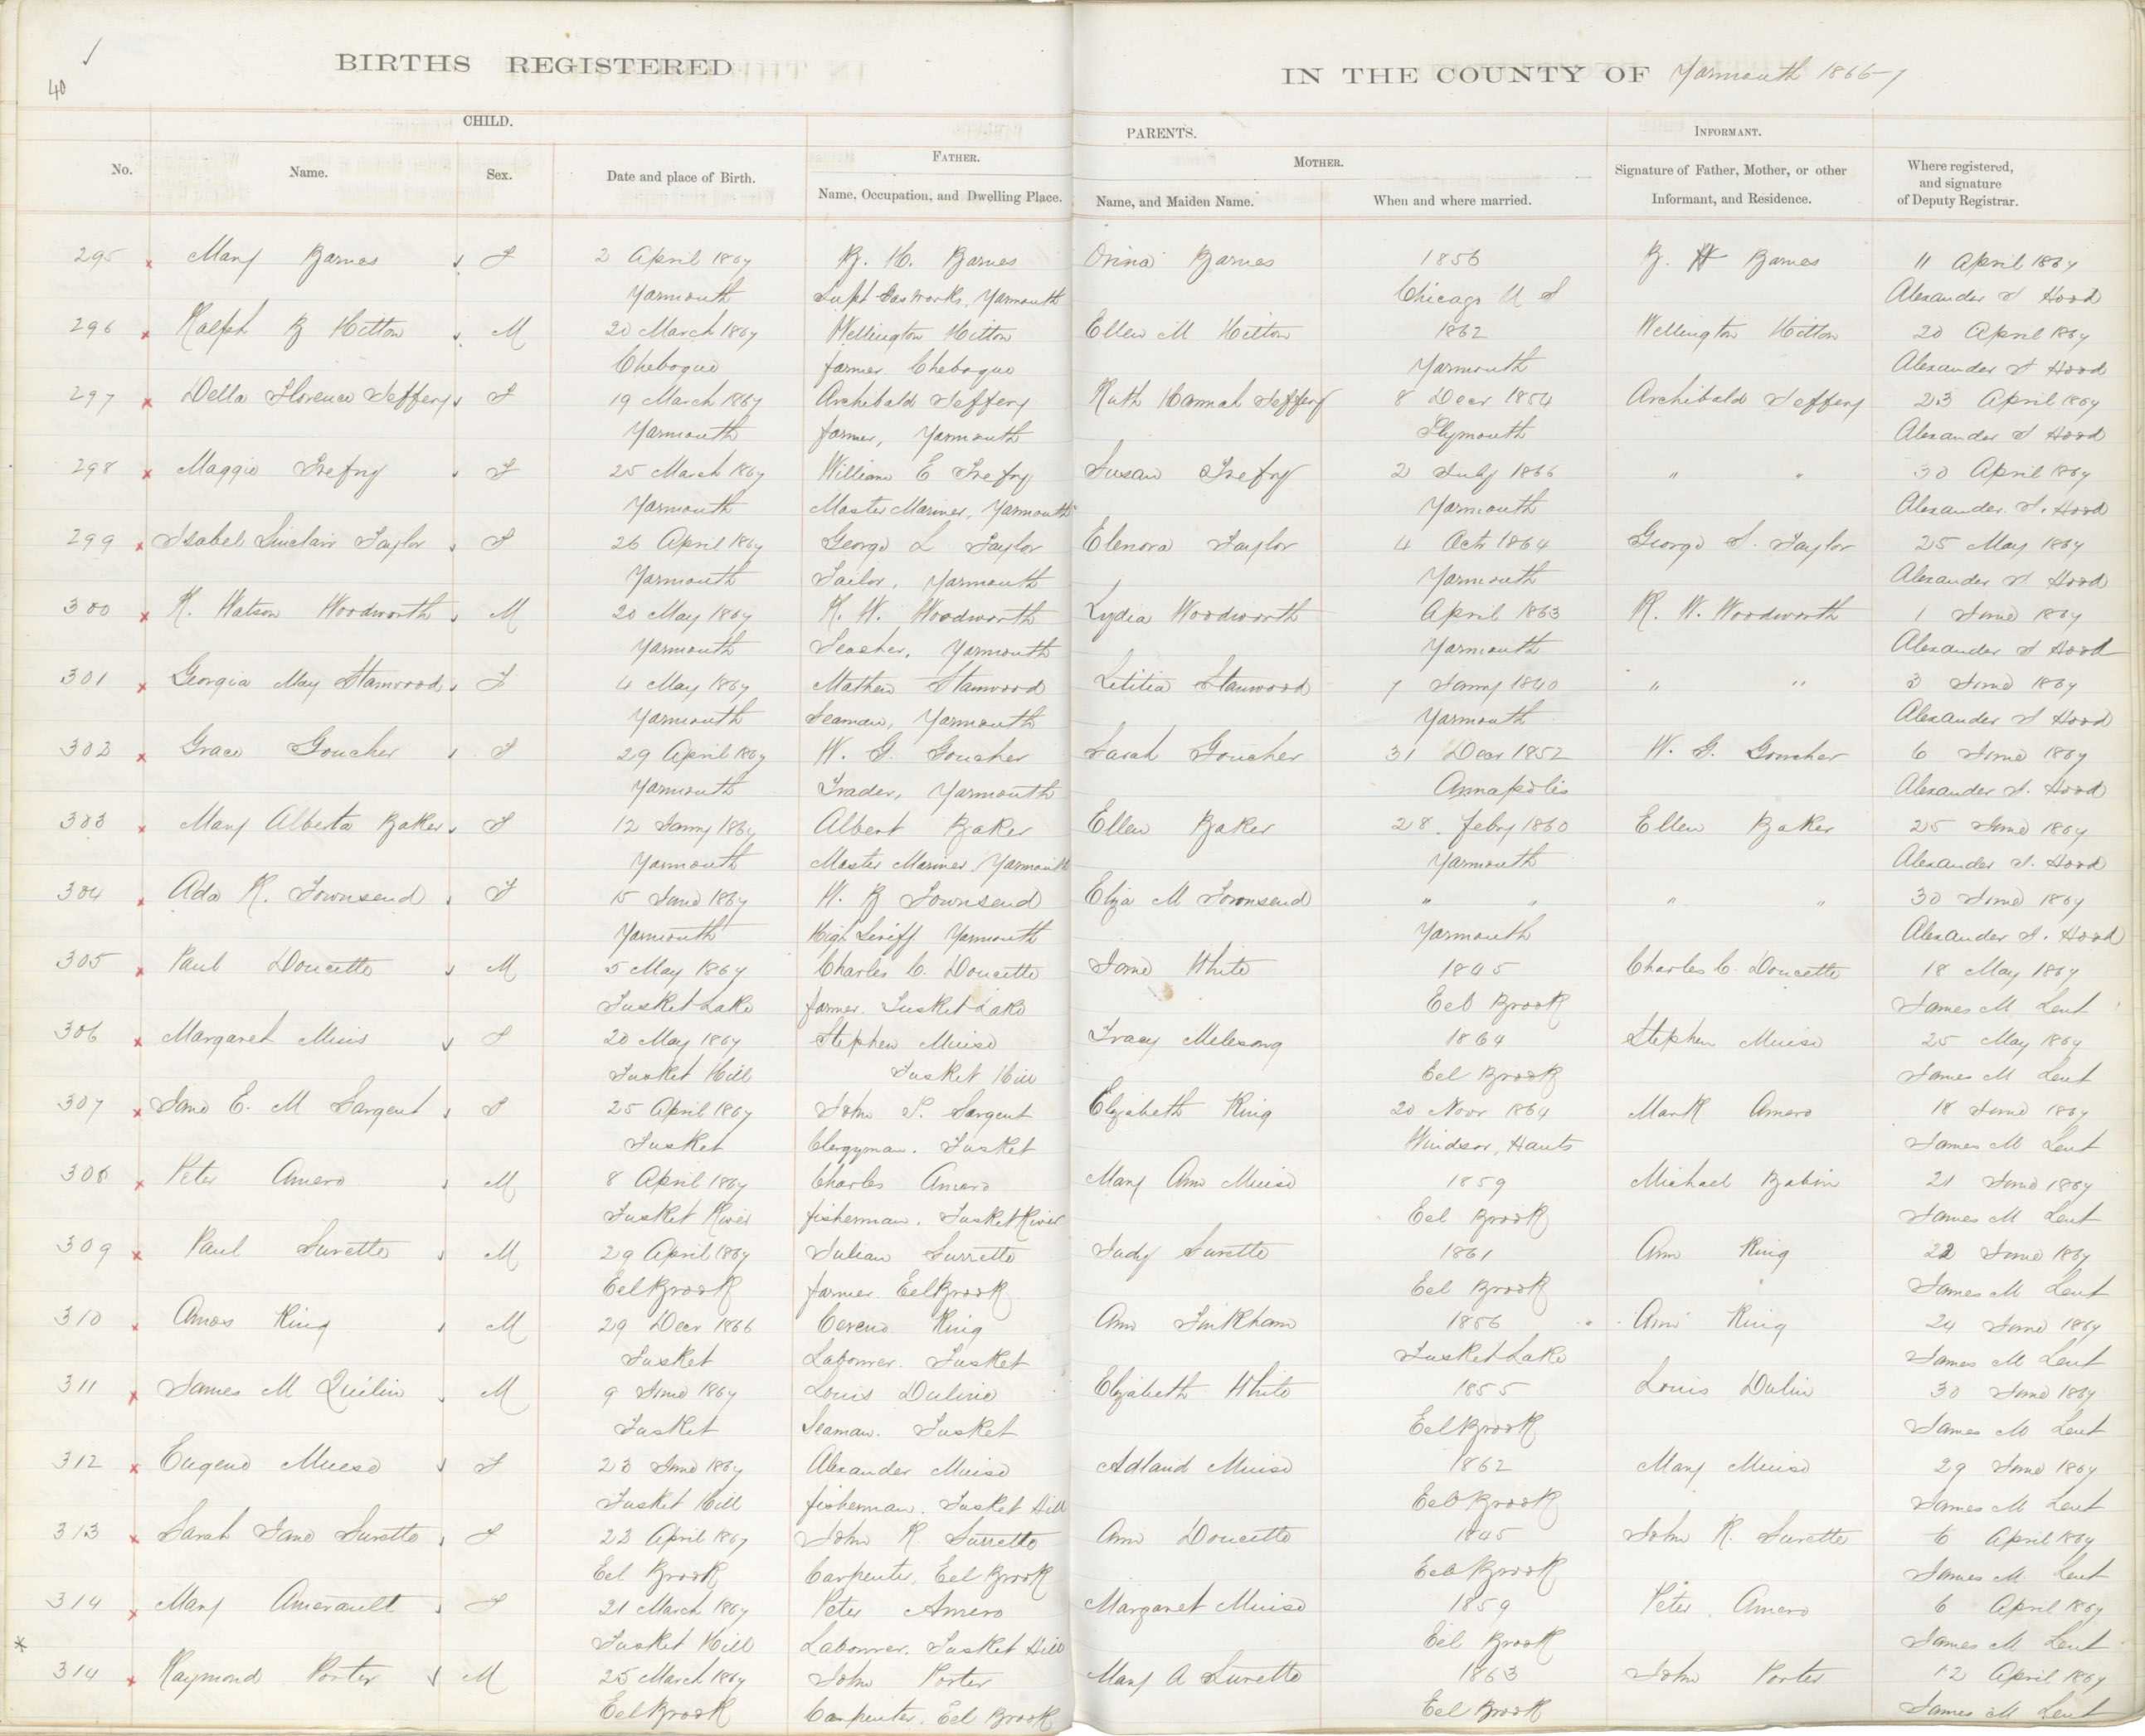 ✓
40
BIRTHS REGISTERED IN THE COUNTY OF Yarmouth 1866-7
CHILD. PARENTS. INFORMANT.
No. Name. Sex. Date and place of Birth. FATHER. Name, Occupation, and Dwelling Place. MOTHER. Name, and Maiden Name. When and where married. Signature of Father, Mother, or other Informant, and Residence. Where registered, and signature of Deputy Registrar.
295 Mary Barnes F 2 April 1867 B. H. Barnes Orina Barnes 1856 B. H Barnes 11 April 1867
Yarmouth Supt Gas Works, Yarmouth Chicago U S Alexander S Hood
296 Ralph B Hilton M 20 March 1867 Wellington Hilton Ellen M Hilton 1862 Wellington Hilton 20 April 1867
Chebogue farmer. Chebogue Yarmouth Alexander S Hood
297 Della Florence Jeffery F 19 March 1867 Archibald Jeffery Ruth Hannah Jeffery 8 Decr 1854 Archibald Jeffery 23 April 1867
Yarmouth farmer, Yarmouth Plymouth Alexander S Hood
298 Maggie Trefry F 25 March 1867 William E Trefry Susan Trefry 2 July 1866 " " 30 April 1867
Yarmouth Master Mariner, Yarmouth Yarmouth Alexander. S. Hood
299 Isabel Sinclair Taylor F 26 April 1867 George L Taylor Elenora Taylor 4 Octr 1864 George S. Taylor 25 May 1867
Yarmouth Tailor, Yarmouth Yarmouth Alexander S. Hood
300 R. Watson Woodworth M 20 May 1867 R. W. Woodworth Lydia Woodworth April 1863 R. W. Woodworth 1 June 1867
Yarmouth Teacher, Yarmouth Yarmouth Alexander S Hood
301 Georgia May Stanwood F 4 May 1867 Mathew Stanwood Letitia Stanwood 7 Jany 1840 " " 3 June 1867
Yarmouth Seaman, Yarmouth Yarmouth Alexander S Hood
302 Grace Goucher F 29 April 1867 W. G. Goucher Sarah Goucher 31 Decr 1852 W. G. Goucher 6 June 1867
Yarmouth Trader, Yarmouth Annapolis Alexander S. Hood
303 Mary Alberta Baker F 12 Jany 1867 Albert Baker Ellen Baker 28. Feby 1860 Ellen Baker 25 June 1867
Yarmouth Master Mariner, Yarmouth Yarmouth Alexander S. Hood
304 Ada R. Townsend F 15 June 1867 W. B Townsend Eliza M Townsend " " " " 30 June 1867
Yarmouth High Seriff Yarmouth Yarmouth Alexander S. Hood
305 Paul Doucette M 5 May 1867 Charles C. Doucette Jane White 1845 Charles C. Doucette 18 May 1867
Tusket Lake farmer. Tusket Lake Eel Brook James M Lent
306 Margaret Muis F 20 May 1867 Stephen Muise Tracy 1864 Stephen Muise 25 May 1867
Tusket Hill Tusket Hill Eel Brook James M Lent
307 Jane E. M Sargent F 25 April 1867 John S. Sargent Elizabeth King 20 Novr 1864 Mark Amero 18 June 1867
Tusket Clergyman. Tusket Windsor, Hants James M Lent
308 Peter Amero M 8 April 1867 Charles Amero Mary Ann Muise 1859 Michael Babin 21 June 1867
Tusket River fisherman. Tusket River Eel Brook James M Lent
309 Paul Surette M 29 April 1867 Julian Surrette Judy Surette 1861 Ann King 22 June 1867
Eel Brook farmer. Eel Brook Eel Brook James M Lent
310 Amos King M 29 Decr 1866 Cereno King Ann Tinkham 1856 Ann King 24 June 1867
Tusket Labourer. Tusket Tusket Lake James M Lent
311 James M Quilin M 9 June 1867 Louis Duline Elizabeth White 1855 Louis Dulin 30 June 1867
Tusket Seaman. Tusket Eel Brook James M Lent
312 Eugene Muese F 23 June 1867 Alexander Muise Adland Muise 1862 Mary Muise 29 June 1867
Tusket Hill fisherman. Tusket Hill Eel Brook James M Lent
313 Sarah Jane Surette F 22 April 1867 John R. Surrette Ann Doucette 1845 John R. Surette 6 April 1867
Eel Brook Carpenter, Eel Brook Eel Brook James M Lent
314 Mary Amerault F 21 March 1867 Peter Amero Margaret Muise 1859 Peter Amero 6 April 1867
* Tusket Hill Labourer. Tusket Hill Eel Brook James M Lent
314 Raymond Porter M 25 March 1867 John Porter Mary A Surette 1863 John Porter 12 April 1867
Eel Brook Carpenter. Eel Brook Eel Brook James M Lent